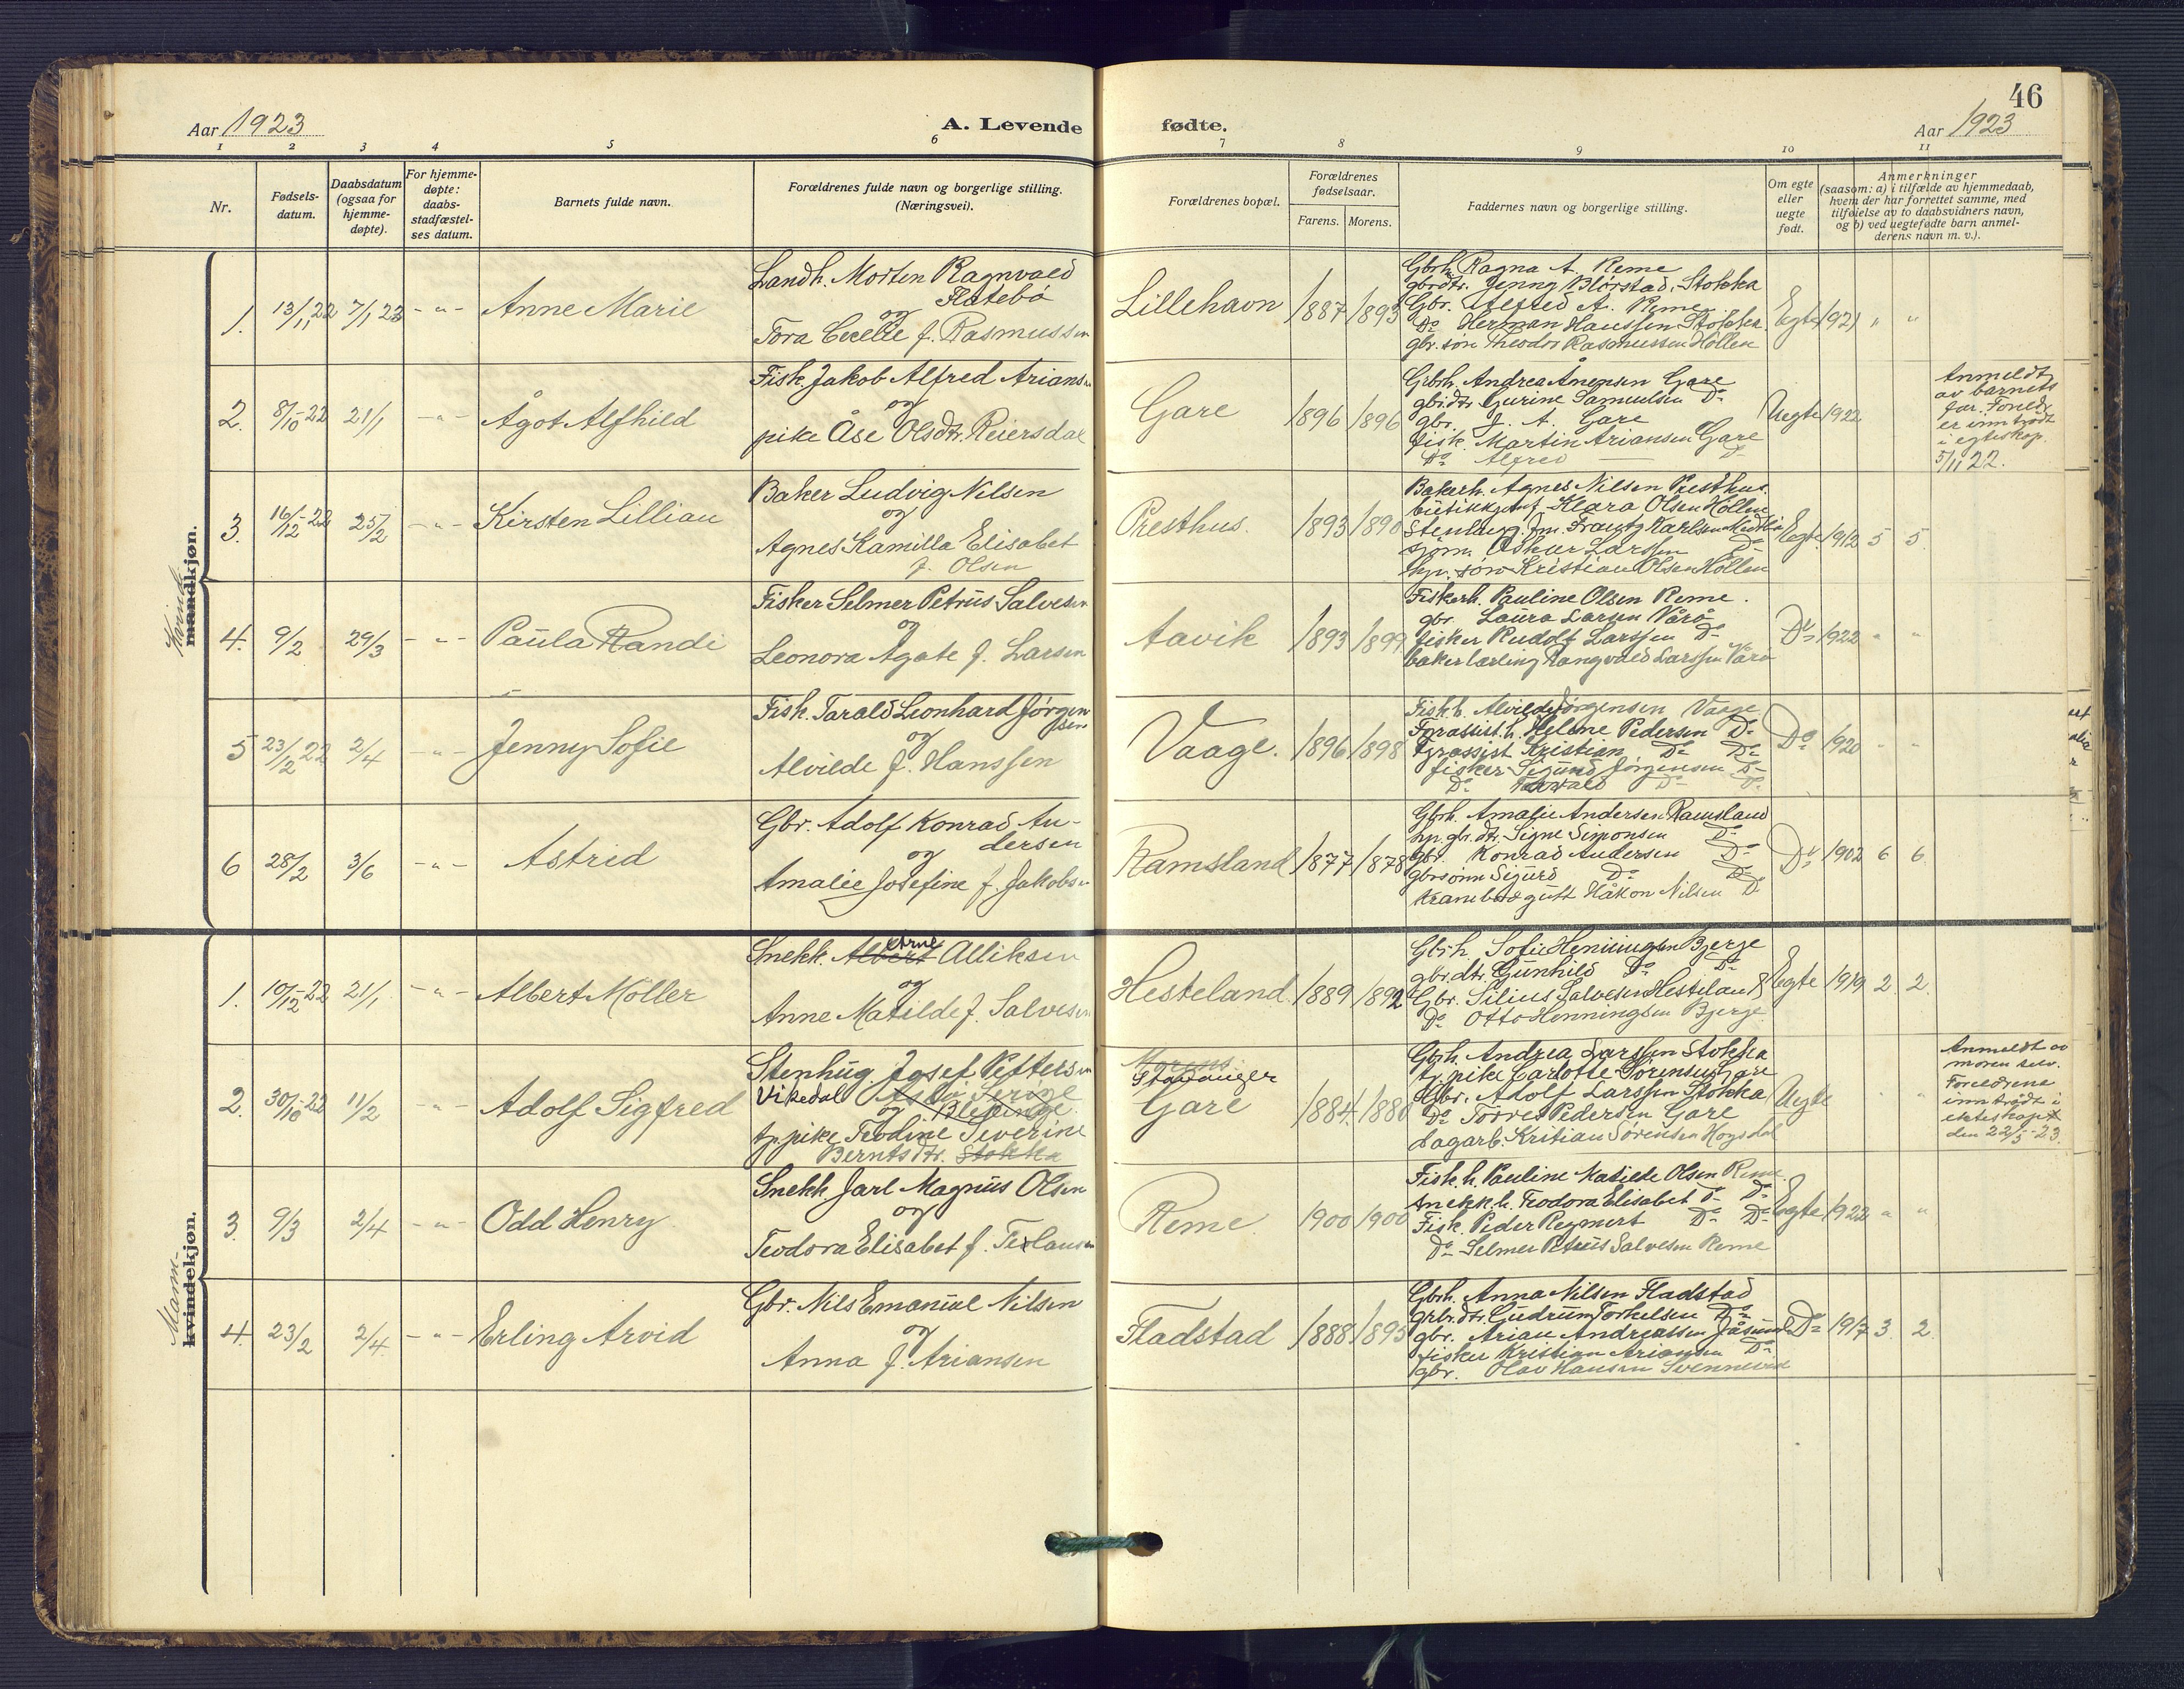 Aar 1923
A. Levende
fødte.
Aar 1923
46
1 2 3 4 5 6 7 8 9 10 11
Nr.
Fødsels-
datum.
Daabsdatum
(ogsaa for
hjemme-
døpte).
For hjemme-
døpte:
daabs-
stadfæstel-
ses datum.
Barnets fulde navn.
Forældrenes fulde navn og borgerlige stilling.
(Næringsvei).
Forældrenes bopæl.
Forældrenes
fødselsaar.
Farens. Morens.
Faddernes navn og borgerlige stilling.
Om egte
eller
uegte
født.
Anmerkninger
(saasom: a) i tilfælde av hjemmedaab,
hvem der har forrettet samme, med
tilføielse av to daabsvidners navn,
og b) ved uegtefødte barn anmel-
derens navn m. v.).
Kvinde-
mandkjøn.
1. 13/11 22 7/1 23 - " - Anne Marie
Landh. Morten Ragnvald
Flatebø
og
Tora Cecelie f. Rasmussen
Lillehavn 1887 1893
Gbrh. Ragna A. Reme
gbrdtr. Jenny Blørstad, Stokka
Gbr. Alfred A. Reme
Do Herman Hanssen Stokka
gbr. søn Theodor Rasmussen Høllen
Egte 1921 " "
2. 8/10-22 21/1 - " - Ågot Alfhild
Fisk. Jakob Alfred Ariansen
og
pike Åse Olsdtr. Reiersdal
Gare 1896 1896
Gbrh. Andrea Ånensen Gare
gbr.dtr. Gurine Samuelsen Do
gbr. J. A. Gare
fisk. Martin Ariansen Gare
Do Alfred — Do
Uegte 1922
Anmeldt
av barnets
far. Foreldr.
er inntrådt
i egteskap.
5/11 22.
3. 16/12-22 25/2 - " - Kirsten Lillian
Baker Ludvig Nilsen
og
Agnes Kamilla Elisabet
f. Olsen
Presthus. 1893 1890
Bakerh. Agnes Nilsen Presthus.
Klara Olsen Høllen
Frantz Karlsen
sjøm. Oskar Larssen Do
søn Kristian Olsen Høllen
Egte 1912 5 5
4. 9/2 29/3 - " - Paula Randi
Fisker Selmer Petrus Salvesen
og
Leonora Agate f. Larsen
Aavik 1893 1899
Fiskerh. Pauline Olsen Reme.
gbr. Laura Larsen Vårå
fisker Rudolf Larssen Do
bakerlærling Rangvald Larssen Vårå
Do 1922 " "
5 23/2 22 2/4 - " - Jenny Sofie
Fisk. Tarald Leonhard Jørgen
sen
og
Alvilde f. Hanssen
Vaage. 1896 1898
Fisk.h. Alvilde Jørgensen Vaage
Fyrassist.h. Helene Pedersen Do
fyrassist Kristian Do Do
fisker Sigurd Jørgensen Do
Do Tarald Do Do
Do 1920 " "
6 28/2 3/6 - " - Astrid
Gbr. Adolf Konrad An-
dersen
og
Amalie Josefine f. Jakobsen
Ramsland 1877 1878
Gbrh. Amalie Andersen Ramsland
hp. gbr. dtr. Signe Simonsen Do
gbr. Konrad Andersen Do
gbrsønn Sigurd Do Do
gutt Håkon Nilsen Do
Do 1902 6 6
Mann-
kvindekjøn.
1. 10/12-22 21/1 - " - Albert Møller
Snekk. Albert Arne Alliksen
og
Anne Matilde f. Salvesen
Hesteland 1889 1892
Gbrh Sofie Henningsen Bjerge
gbrdtr Gunhild Do Do
Gbr. Silius Salvesen Hesteland
Do Otto Henningsen Bjerge
Egte 1919 2 2
2. 30/10-22 11/2 - " - Adolf Sigfred
Stenhug. Josef Pettersen
Vikedal
og
tj. pike Teodine Severine
Berntsdtr. Stokka
Morens:
Stavanger
Gare 1884. 1886
Gbrh. Andrea Larssen Stokka
tj. pike Carlotte Sørensen Gare
Gbr. Adolf Larssen Stokka
Do Torres Pedersen Gare
dagarb. Kristian Sørensen Høgsdal
Uegte
Anmeldt av
moren selv.
Foreldrene
inntrådt i
ekteskap
den 22/5-23.
3. 9/3 2/4 - " - Odd Henry
Snekk. Jarl Magnus Olsen
og
Teodora Elisabet f. Terlausen
Reme 1900 1900
Fisk.h. Pauline Matilde Olsen Reme
snekk.h. Teodora Elisabet Do Do
Fisk. Peder Regmert Do Do
Do Selmer Petrus Salvesen Reme
Egte 1922 " "
4. 23/2 2/4 - " - Erling Arvid
Gbr. Nils Emanuel Nilsen
og
Anna f. Ariansen
Fladstad 1888 1895
Gbrh. Anna Nilsen Fladstad
gbr.dtr. Gudrun Torkelsen Do
gbr. Arian Andreassen Jåsund
fisker Kristian Ariansen Do
gbr. Olav Hansen Svennevik
Do 1917 3 2